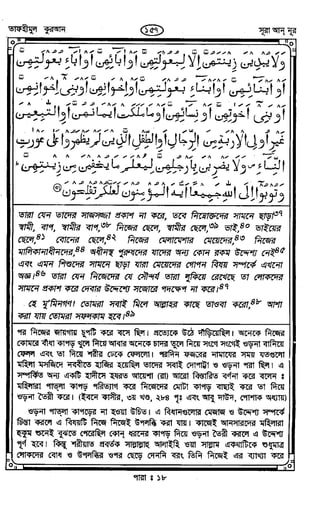 তাফহীমুল কুরআন
১৫৭
সূরা আন্ নূর
وَلَا يُبْدِينَ زِينَتَهُنَّ إِلَّا لِبُعُولَتِهِنَّ أَوْ آبَائِهِنَّ أَوْ آبَاءِ بُعُولَتِهِنَّ
أَوْ أَبْنَائِهِنَّ أَوْ أَبْنَاءِ بُعُولَتِهِنَّ أَوْ إِخْوَانِهِنَّ أَوْ بَنِي إِخْوَانِهِنَّ
أَوْ بَنِي أَخَوَاتِهِنَّ أَوْ نِسَائِهِنَّ أَوْ مَا مَلَكَتْ أَيْمَانُهُنَّ أَوِ التَّابِعِينَ
غَيْرِ أُولِي الْإِرْبَةِ مِنَ الرِّجَالِ أَوِ الطِّفْلِ الَّذِينَ لَمْ يَظْهَرُوا عَلَىٰ عَوْرَاتِ
النِّسَاءِ وَلَا يَضْرِبْنَ بِأَرْجُلِهِنَّ لِيُعْلَمَ مَا يُخْفِينَ مِنْ زِينَتِهِنَّ
وَتُوبُوا إِلَى اللَّهِ جَمِيعًا أَيُّهَ الْمُؤْمِنُونَ لَعَلَّكُمْ تُفْلِحُونَ
তারা যেন তাদের সাজসজ্জা প্রকাশ না করে, তবে নিম্নোক্তদের সামনে ছাড়া৩৭
স্বামী, বাপ, স্বামীর বাপ,৩৮ নিজের ছেলে, স্বামীর ছেলে,৩৯ ভাই,৪০ ভাইয়ের
ছেলে,৪১ বোনের ছেলে,৪২ নিজের মেলামেশার মেয়েদের,৪৩ নিজের
মালিকানাধীনদের,৪৪ অধীনস্থ পুরুষদের যাদের অন্য কোন রকম উদ্দেশ্য নেই৪৫
এবং এমন শিশুদের সামনে ছাড়া যারা মেয়েদের গোপন বিষয় সম্পর্কে এখনো
অজ্ঞ।৪৬ তারা যেন নিজেদের যে সৌন্দর্য তারা লুকিয়ে রেখেছে তা লোকদের
সামনে প্রকাশ করে দেবার উদ্দেশ্যে সজোরে পদক্ষেপ না করে।৪৭
হে মু'মিনগণ! তোমরা সবাই মিলে আল্লাহর কাছে তাওবা করো,৪৮ আশা
করা যায় তোমরা সফলকাম হবে।৪৯
পর নিজের জায়গায় চুপটি করে বসে ছিল। প্রত্যেকে উঠে দাঁড়িয়েছিল। অনেকে নিজের
কোমরে বাঁধা কাপড় খুলে নিয়ে আবার অনেকে চাদর তুলে নিয়ে সংগে সংগেই ওড়না বানিয়ে
ফেলল এবং তা দিয়ে শরীর ঢেকে ফেললো। পরদিন ফজরের নামাযের সময় যতগুলো
মহিলা মসজিদে নববীতে হাজির হয়েছিল তাদের সবাই দোপাট্টা ও ওড়না পরা ছিল। এ
সম্পর্কিত অন্য একটি হাদীসে হযরত আয়েশা (রা) আরো বিস্তারিত বর্ণনা করে বলেন :
মহিলারা পাতলা কাপড় পরিত্যাগ করে নিজেদের মোটা কাপড় বাছাই করে তা দিয়ে
ওড়না তৈরী করে। (ইবনে কাসীর, ৩য় খণ্ড, ২৮৪ পৃঃ এবং আবু দাউদ, পোশাক অধ্যায়)
ওড়না পাতলা কাপড়ের না হওয়া উচিত। এ বিধানগুলোর মেজাজ ও উদ্দেশ্য সম্পর্কে
চিন্তা করলে এ বিষয়টি নিজে নিজেই উপলব্ধি করা যায়। কাজেই আনসারদের মহিলারা
হুকুম শুনেই বুঝতে পেরেছিল কোন্ ধরনের কাপড় দিয়ে ওড়না তৈরী করলে এ উদ্দেশ্য
পূর্ণ হবে। কিন্তু শরীয়াত প্রবর্তক সাল্লাল্লাহু আলাইহি ওয়া সাল্লাম একথাটিকে শুধুমাত্র
লোকদের বোধ ও উপলব্ধির ওপর ছেড়ে দেননি বরং তিনি নিজেই এর ব্যাখ্যা করে
পারা : ১৮